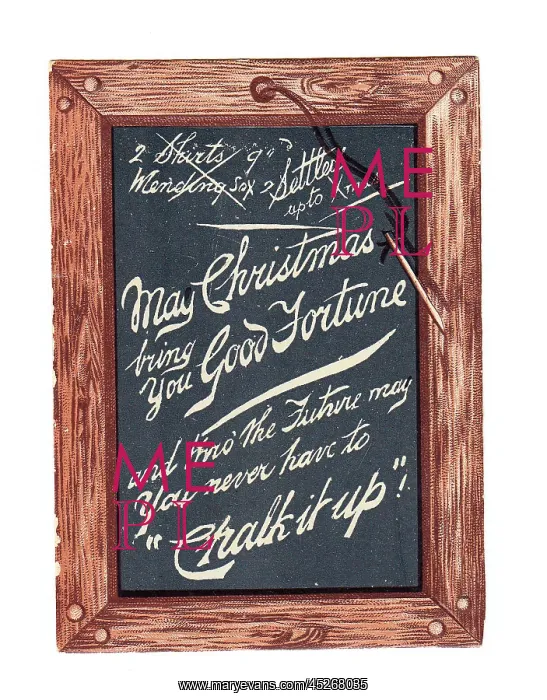 2 Shirts 9"
Mending Sox 2 Settled
up to
May Christmas
bring
you Good Fortune
and thro' the Future may
You never have to
"Chalk it up"!
ME
PL
ME
PL
www.maryevans.com/45268035